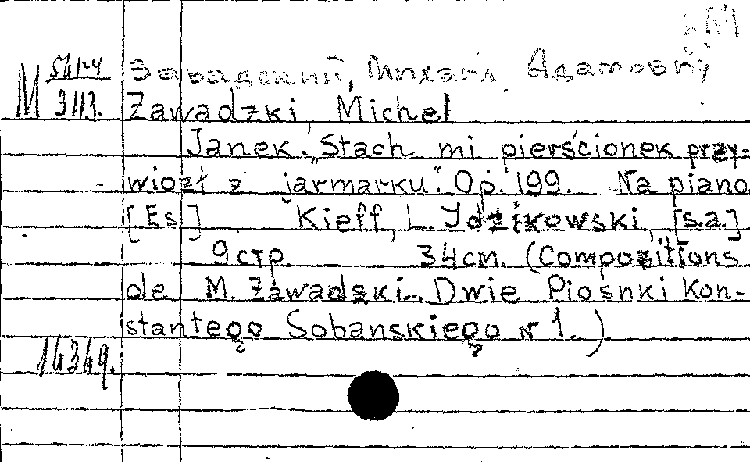 Завадский, Михаил Адамович
M 54174 / 3113.
Zawadzki Michel
Janek. „Stach mi pierścionek przy-
wiozł z jarmarku". Op. 199. Na piano
[Es] Kieff, L. Idzikowski, [s.a.]
9 стр. 34 см. (Compozitions
de M. Zawadzki. Dwie Piosnki Kon-
stantego Sobanskiego № 1.)
14349.